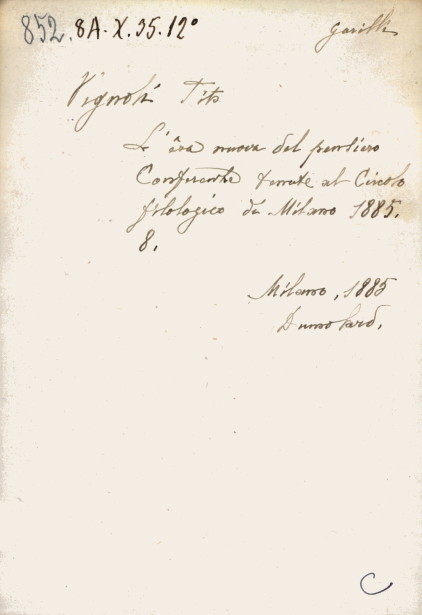 852. 8A-X.35.12°
Vignoli Tito
L'êra nuova del pensiero
Conferenze tenute al Circolo
filologico di Milano 1885.
8.
Milano, 1885
Dumolard.
C